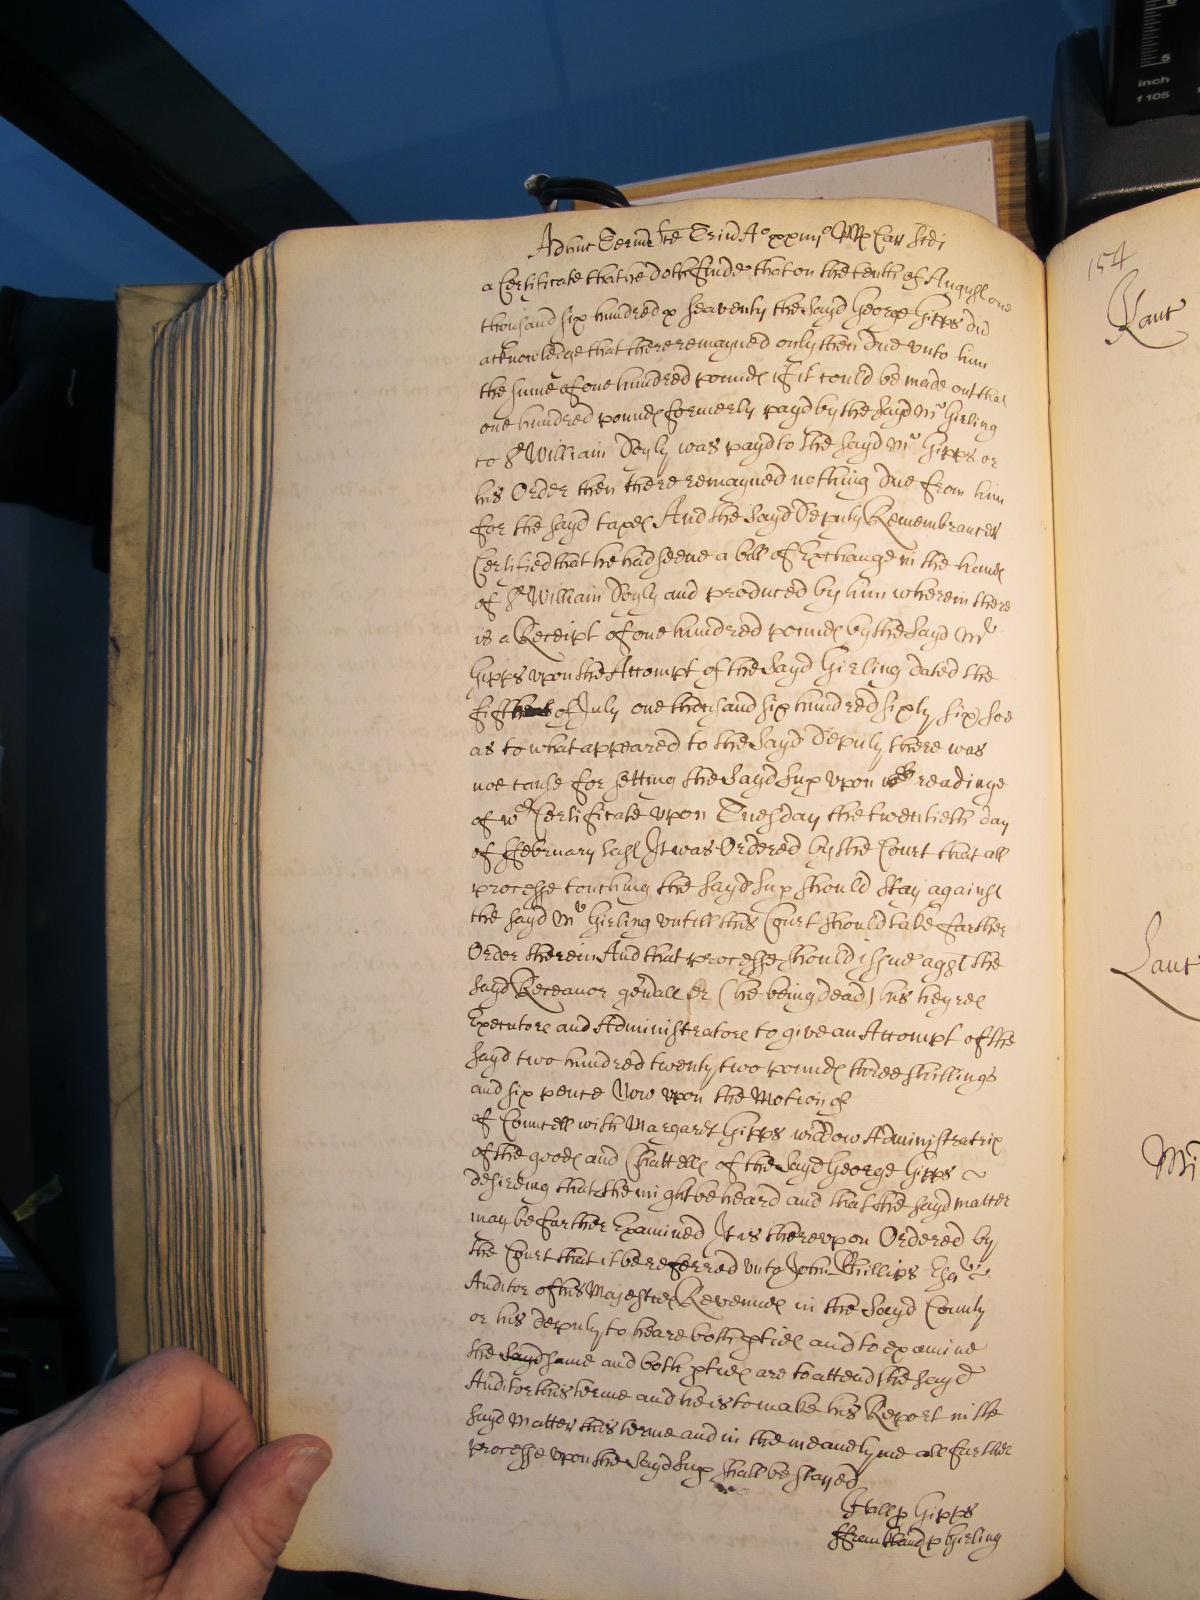 Adhuc Termi Sce Trin A° xxiiij° RRs Car Scdi
a Certificate that he doth finde that on the tenth of August one
thousand six hundred & seaventy the sayd George Gipps did
acknowledge that there remayned only then due unto him
the sume of one hundred pounds if it could be made out that
one hundred pounds formerly payd by the sayd Mr Girling
to Sr William Doyly was payd to the sayd Mr Gipps or
his Order then there remayned nothing due from him
for the sayd taxes And the sayd Deputy Remembrancer
Certified that he had seene a bill of Exchange in the hands
of Sr William Doyly and produced by him wherein there
is a Receipt of one hundred pounds by the sayd Mr
Gipps upon the Accompt of the sayd Girling dated the
fifth of July one thousand six hundred sixty six soe
as to what appeared to the sayd Deputy there was
noe cause for setting the sayd Sup upon readinge
of wch Certificate upon Tuesday the twentieth day
of ffebruary last It was Ordered by the Court that all
processe touching the sayd Sup should stay against
the sayd Mr Girling untill this Court should take farther
Order therein And that processe should issue agst the
sayd Receavor gen'all or (he being dead) his heyres
Executors and Administrators to give an Accompt of the
sayd two hundred twenty two pounds three shillings
and six pence Now upon the Motion of
of Councell with Margaret Gipps widdow Administratrix
of the goods and Chattells of the sayd George Gipps
desireing that she might be heard and that the sayd matter
may be farther Examined It is thereupon Ordered by
the Court that it be referred unto John Phillips Esqr
Auditor of his Majesties Revenues in the sayd County
or his deputy to heare both pties and to examine
the sayd same and both pties are to attend the sayd
Auditor this terme and he is to make his Report in the
sayd Matter this terme and in the meane tyme all further
processe upon the sayd Sup shall be stayed
p Gipps
p Girling
154
inch
f 105
5